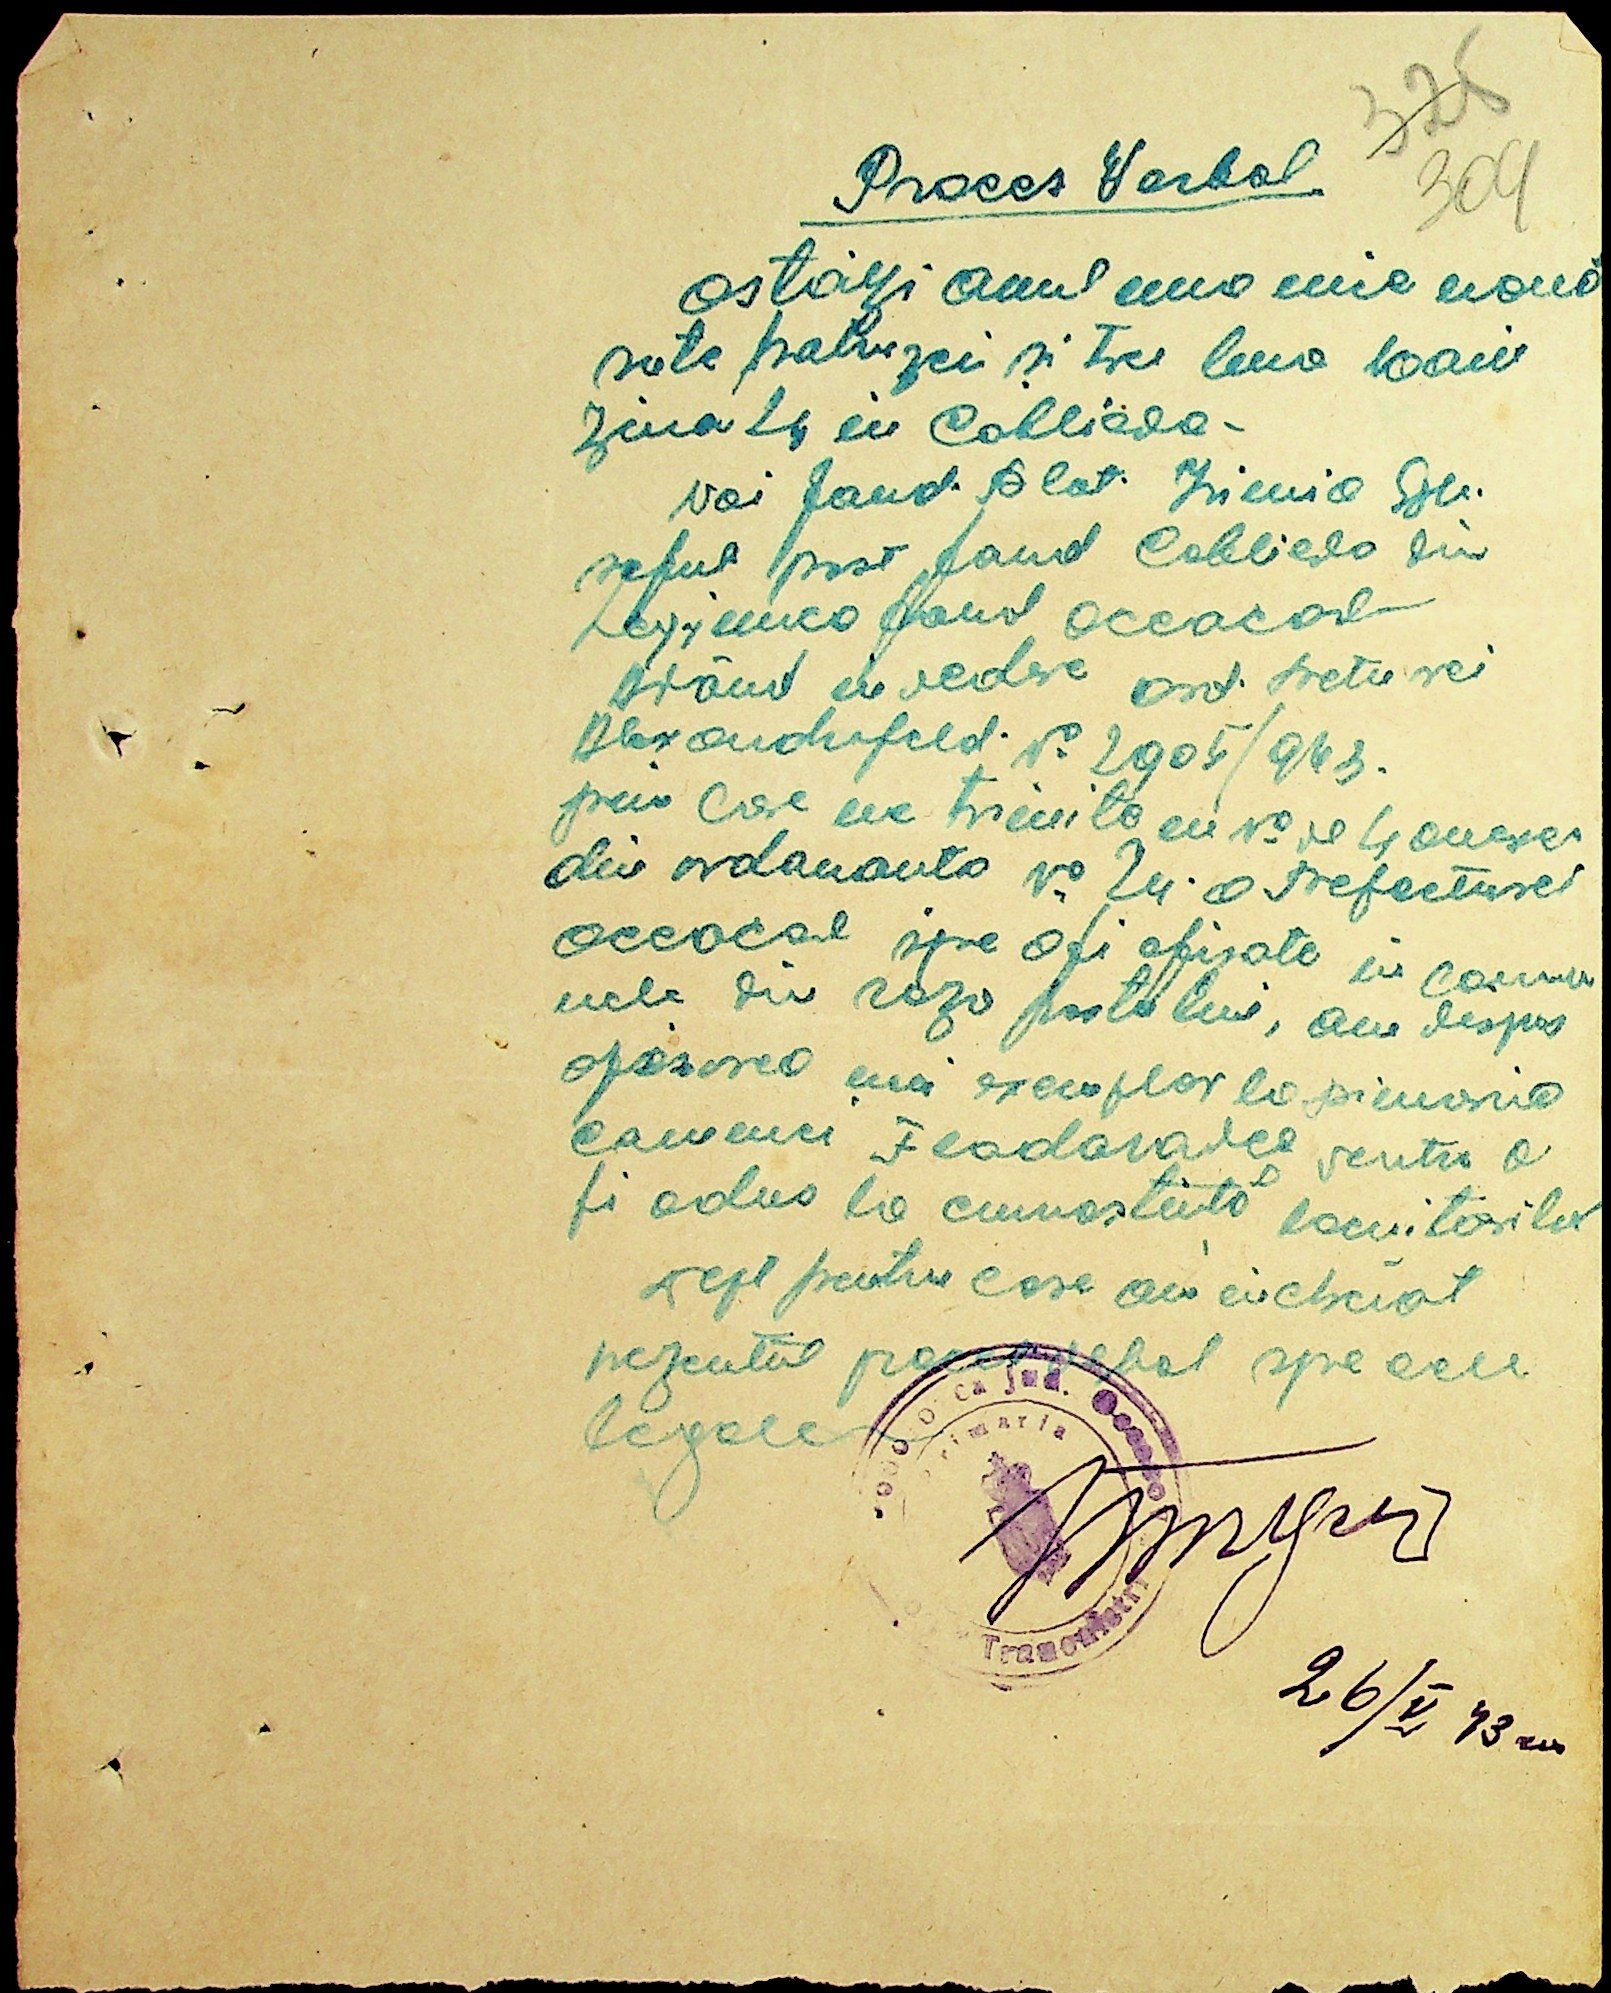 325
304
Proces Verbal
astăzi anul una mie nouă
sute patruzeci și trei luna Maiu
ziua 24 in Cobliевo
Noi Jand. Plat. Irimia Gh.
șeful post Jand Coblievo din
Legiunea Jand Oceacov
Având in vedere ord. Preturei
Alexandrfeld No 2905/943.
prin care ne trimite un No de 4 anexe
din ordonanta No 24 a Prefecturei
Oceacov spre a fi afisate in comu
nele din raza postului, am dispus
afisarea unui exemplar la primaria
comunei Feodorovca pentru a
fi adus la cunostintă locuitorilor
Drept pentru care am incheiat
prezentul proces verbal spre cele
legale
Jud. Oceacov
Primaria
Transnistri
26/V 43